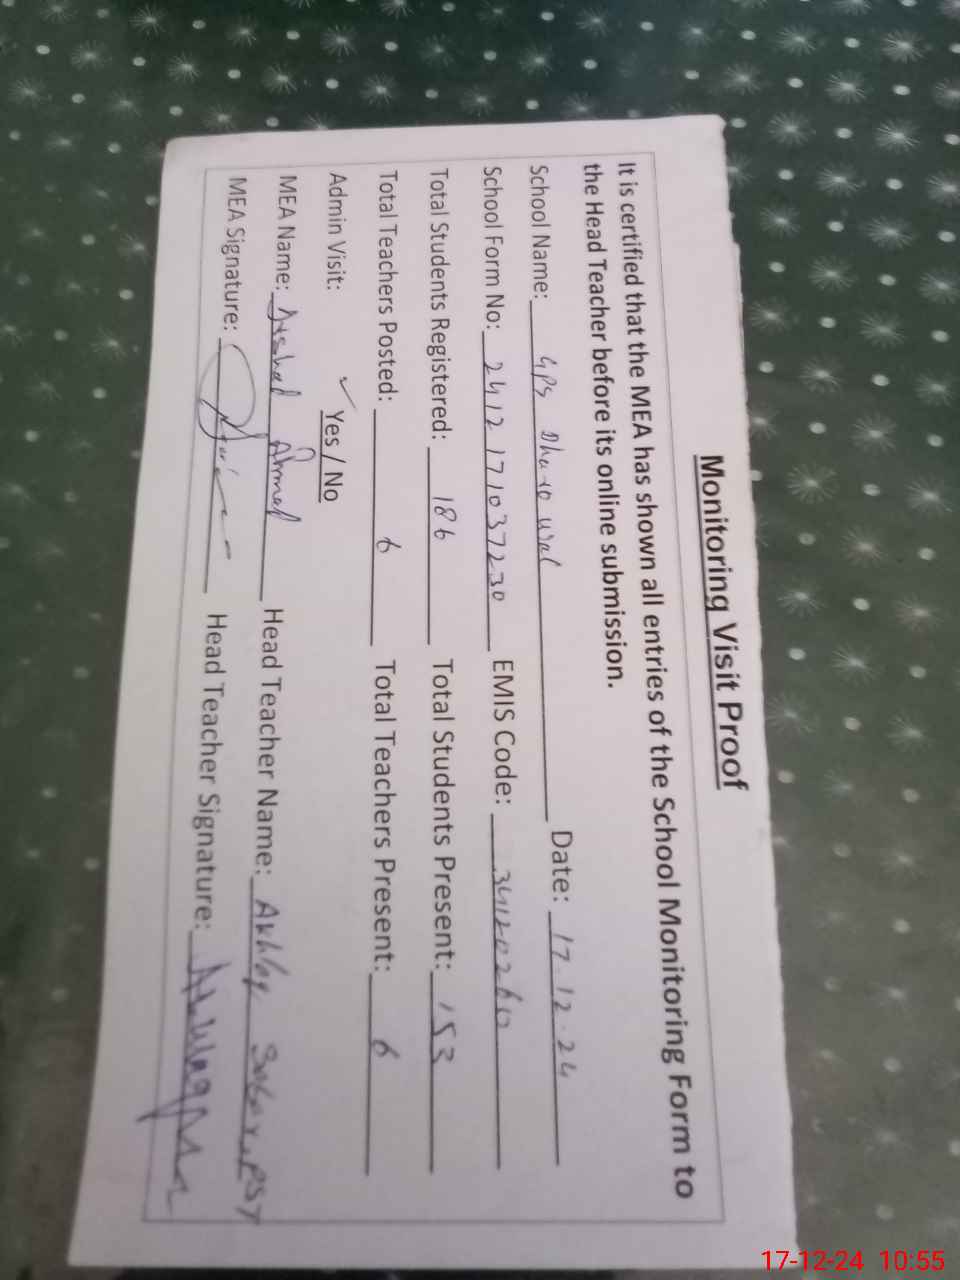 Monitoring Visit Proof
It is certified that the MEA has shown all entries of the School Monitoring Form to
the Head Teacher before its online submission.
School Name: GPS Date: 17.12.24
School Form No: 2412171037230 EMIS Code:
Total Students Registered: 186 Total Students Present: 153
Total Teachers Posted: 6 Total Teachers Present: 6
Admin Visit: ✓ Yes / No
MEA Name: Arshad Ahmed Head Teacher Name: Akhlaq PST
MEA Signature: Head Teacher Signature:
17-12-24 10:55